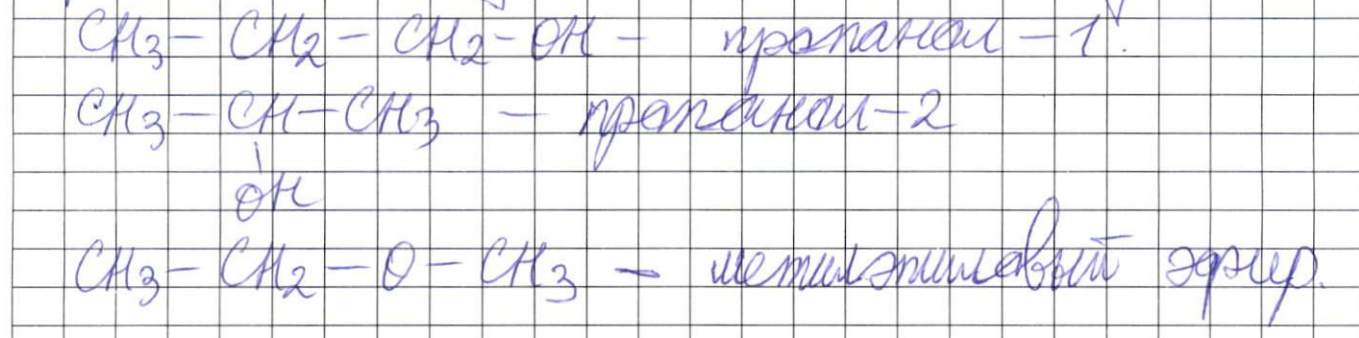 CH3 – CH2 – CH2 – OH – пропанол – 1.
CH3 – CH – CH3 – пропанол – 2
OH
CH3 – CH2 – O – CH3 – метилэтиловый эфир.